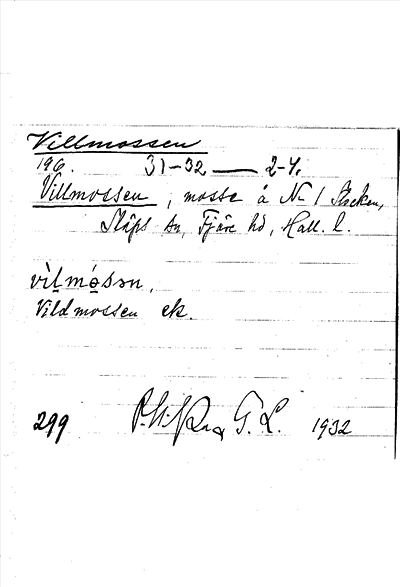 Villmossen
196. 31-32 — 2-4.
Villmossen, mosse å No 1 Stocken,
Släps sn, Fjäre hd, Hall. l.
vìlmósən,
Vildmossen ek.
299 G. L. 1932